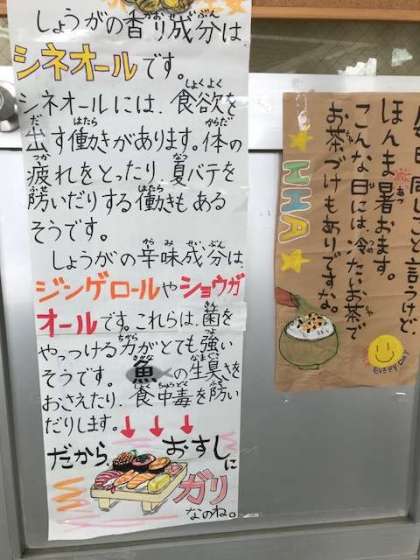 しょうがの香り成分は
シネオールです。
シネオールには、食欲を
出す働きがあります。体の
疲れをとったり、夏バテを
防いだりする働きも ある
そうです。
しょうがの辛味成分は
ジンゲロールやショウガ
オールです。これらは、菌を
やっつける力がとても強い
そうです。魚の生臭さを
おさえたり、食中毒を防い
だりします。↓↓↓
だから、おすしに
ガリ
なのね。
ほんま暑おます。
こんな日には、冷たいお茶で
お茶づけもありですな。